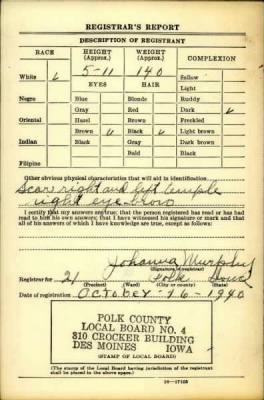 REGISTRAR'S REPORT
DESCRIPTION OF REGISTRANT
RACE HEIGHT (Approx.) WEIGHT (Approx.) COMPLEXION
5-11 140
White ✓ EYES HAIR Sallow
Light
Negro Blue Blonde Ruddy
Gray Red Dark ✓
Oriental Hazel Brown Freckled
Brown ✓ Black ✓ Light brown
Indian Black Gray Dark brown
Bald Black
Filipino
Other obvious physical characteristics that will aid in identification
Scar right and left temple
right eye brow
I certify that my answers are true; that the person registered has read or has had
read to him his own answers; that I have witnessed his signature or mark and that
all of his answers of which I have knowledge are true, except as follows:
Johanna Murphy
(Signature of registrar)
Registrar for 21 Polk Iowa
(Precinct) (Ward) (City or county) (State)
Date of registration October-16-1940
POLK COUNTY
LOCAL BOARD NO. 4
810 CROCKER BUILDING
DES MOINES IOWA
(STAMP OF LOCAL BOARD)
(The stamp of the Local Board having jurisdiction of the registrant
shall be placed in the above space.)